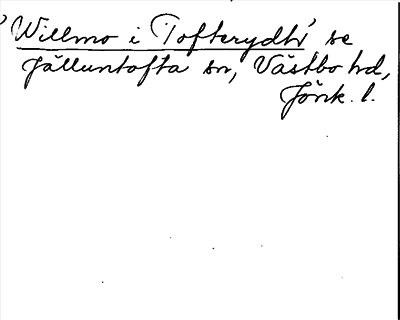 'Willmo i Tofterydh' se
Jälluntofta sn, Västbo hd,
Jönk. l.